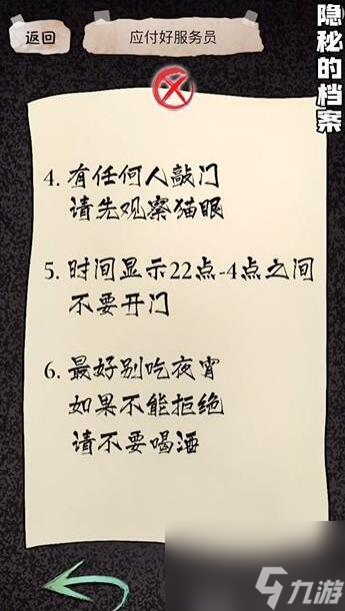 返回
应付好服务员
隐秘的档案
4. 有任何人敲门
请先观察猫眼
5. 时间显示22点-4点之间
不要开门
6. 最好别吃夜宵
如果不能拒绝
请不要喝酒
九游